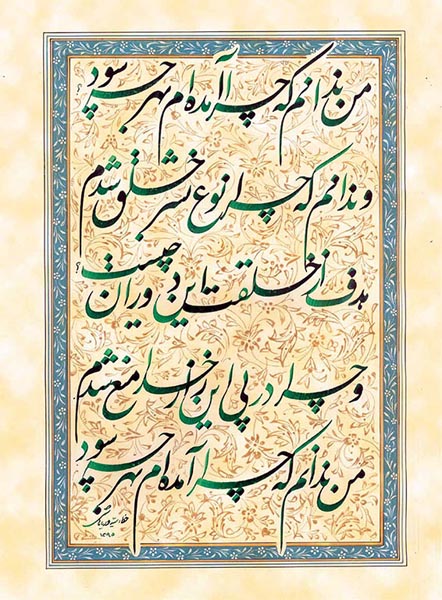 من ندانم که چرا آمده ام بهر چه سود ؟
و ندانم که چرا نوع بشر خلق شدم
هدف از خلقت این دوران چیست ؟
و چرا در پی این راز خدا منع شدم
من ندانم که چرا آمده ام بهر چه سود
۱۳۹۵